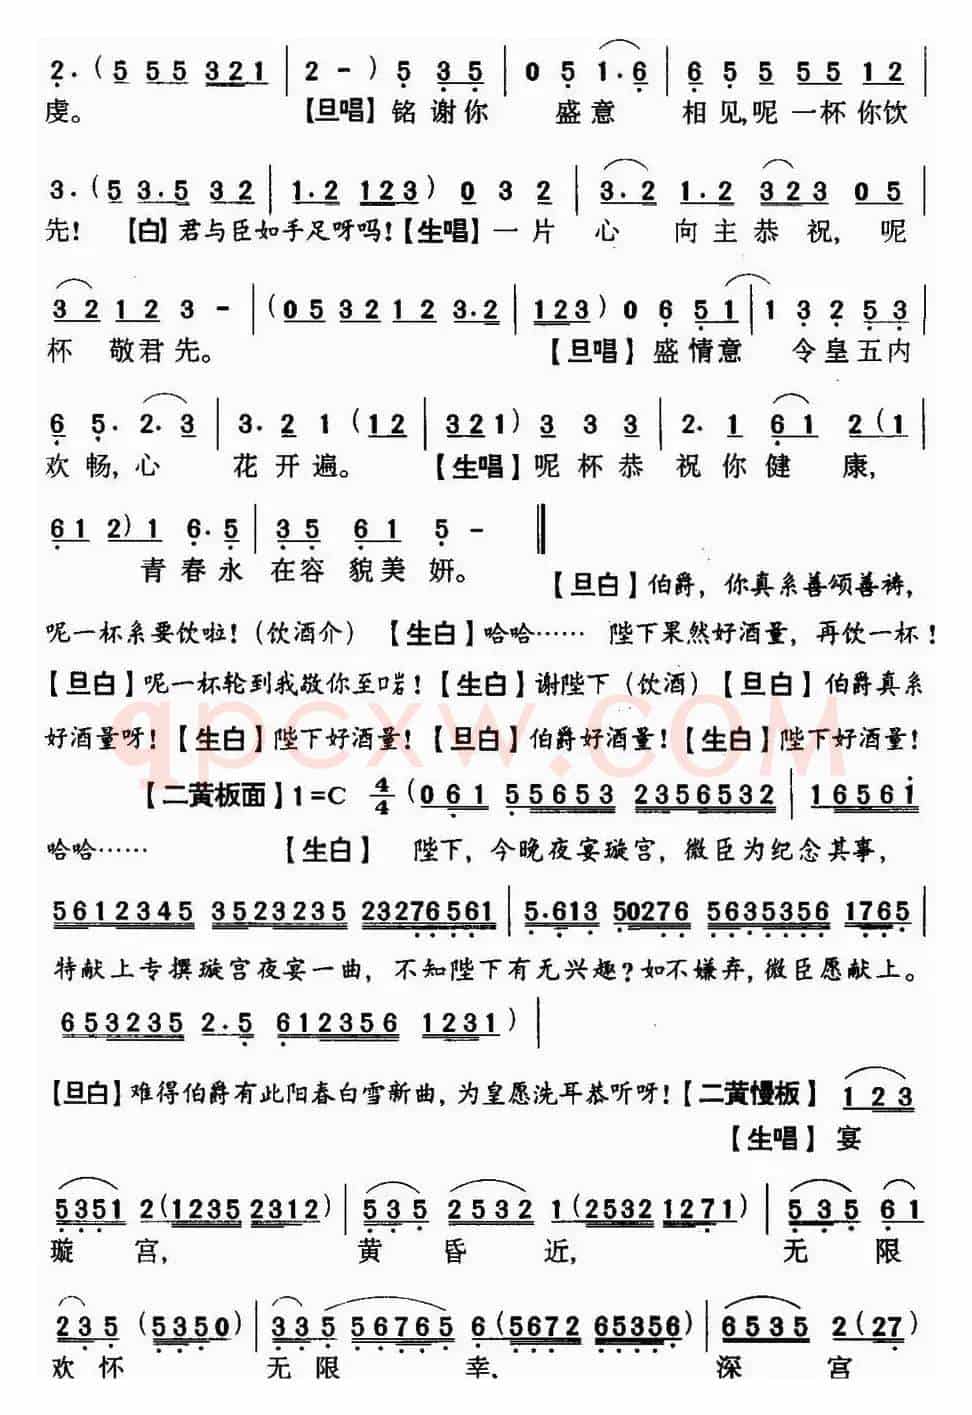 2. (5 5 5 3 2 1 | 2 - ) 5 3 5 | 0 5 1. 6 | 6 5 5 5 5 1 2 |
虔。 【旦唱】铭谢你 盛意 相见,呢一杯你饮
3. (5 3.5 3 2 | 1.2 1 2 3) 0 3 2 | 3.2 1.2 3 2 3 0 5 |
先! 【白】君与臣如手足呀吗!【生唱】一片 心 向主恭祝, 呢
3 2 1 2 3 - | (0 5 3 2 1 2 3.2 | 1 2 3) 0 6 5 1 | 1 3 2 5 3 |
杯 敬君先。 【旦唱】盛情意 令皇五内
6 5. 2. 3 | 3. 2 1 (1 2 | 3 2 1) 3 3 3 | 2. 1 6 1 2 (1 |
欢畅,心 花开遍。 【生唱】呢杯恭 祝你健 康,
6 1 2) 1 6. 5 | 3 5 6 1 5 - ‖
青春永 在容 貌美 妍。
【旦白】伯爵，你真系善颂善祷，
呢一杯系要饮啦!（饮酒介） 【生白】哈哈…… 陛下果然好酒量，再饮一杯!
【旦白】呢一杯轮到我敬你至啱! 【生白】谢陛下（饮酒）【旦白】伯爵真系
好酒量呀! 【生白】陛下好酒量! 【旦白】伯爵好酒量! 【生白】陛下好酒量!
qpcxw.com
【二黄板面】1=C 4/4 (0 6 1 5 5 6 5 3 2 3 5 6 5 3 2 | 1 6 5 6 1
哈哈…… 【生白】 陛下，今晚夜宴璇宫，微臣为纪念其事，
5 6 1 2 3 4 5 3 5 2 3 2 3 5 2 3 2 7 6 5 6 1 | 5. 6 1 3 5 0 2 7 6 5 6 3 5 3 5 6 1 7 6 5 |
特献上专撰璇宫夜宴一曲，不知陛下有无兴趣?如不嫌弃,微臣愿献上。
6 5 3 2 3 5 2. 5 6 1 2 3 5 6 1 2 3 1 ) |
【旦白】难得伯爵有此阳春白雪新曲，为皇愿洗耳恭听呀!【二黄慢板】 1 2 3
【生唱】 宴
5 3 5 1 2 (1 2 3 5 2 3 1 2) | 5 3 5 2 5 3 2 1 (2 5 3 2 1 2 7 1) | 5 3 5 6 1
璇 宫, 黄 昏 近, 无 限
2 3 5 (5 3 5 0) | 3 3 5 5 6 7 6 5 6 (5 6 7 2 6 5 3 5 6) | 6 5 3 5 2 (2 7)
欢 怀 无 限 幸. 深 宫